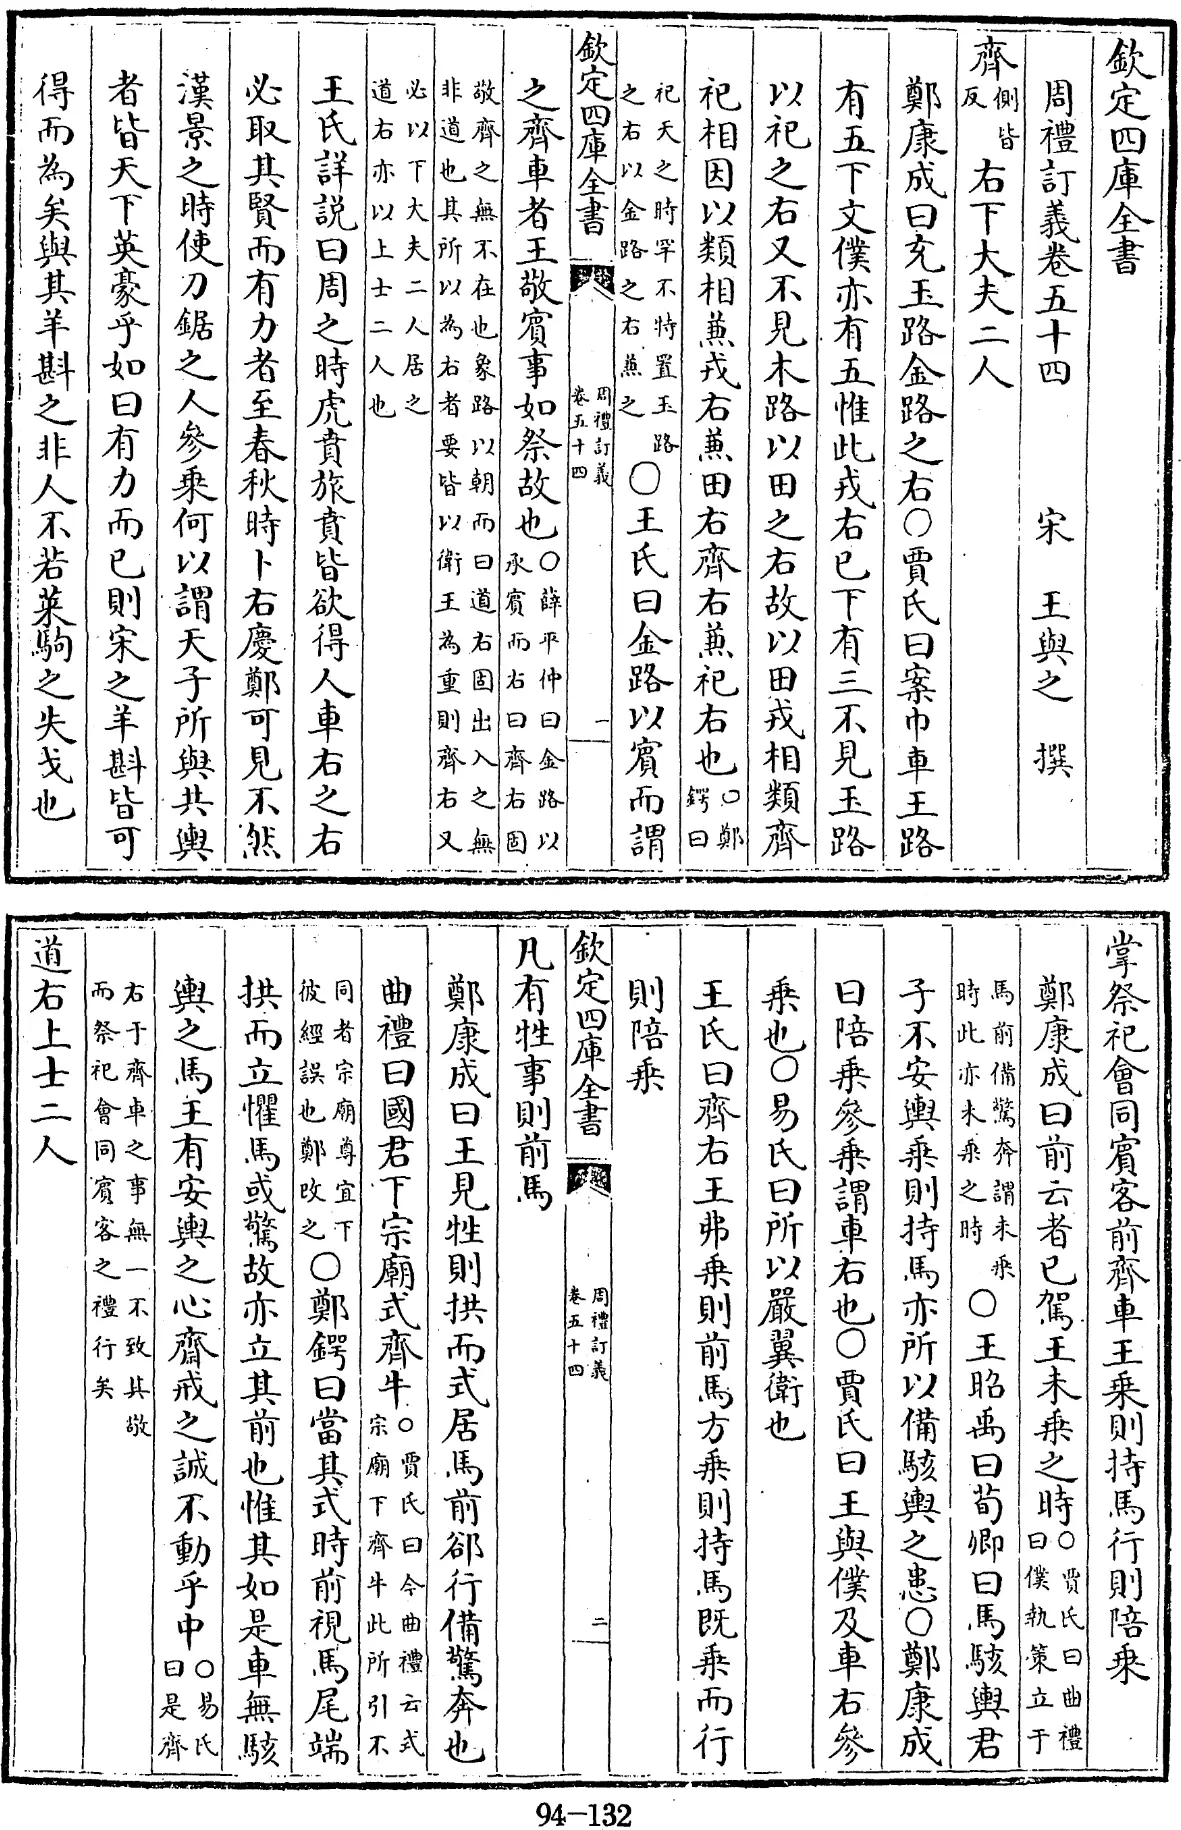 欽定四庫全書
周禮訂義卷五十四　宋　王與之　撰
齊側皆反右下大夫二人
鄭康成曰充玉路金路之右○賈氏曰案巾車王路
有五下文僕亦有五惟此戎右已下有三不見玉路
以祀之右又不見木路以田之右故以田戎相類齊
祀相因以類相兼戎右兼田右齊右兼祀右也○鄭鍔曰
祀天之時罕不特置玉路之右以金路之右兼之○王氏曰金路以賓而謂
欽定四庫全書　周禮訂義卷五十四　一
之齊車者王敬賓事如祭故也○薛平仲曰金路以承賓而右曰齊右固
敬齊之無不在也象路以朝而曰道右固出入之無非道也其所以為右者要皆以衛王為重則齊右又
必以下大夫二人居之道右亦以上士二人也
王氏詳説曰周之時虎賁旅賁皆欲得人車右之右
必取其賢而有力者至春秋時卜右慶鄭可見不然
漢景之時使刀鋸之人參乗何以謂天子所與共輿
者皆天下英豪乎如曰有力而已則宋之羊斟皆可
得而為矣與其羊斟之非人不若萊駒之失戈也
掌祭祀會同賓客前齊車王乗則持馬行則陪乗
鄭康成曰前云者已駕王未乗之時○賈氏曰曲禮曰僕執策立于
馬前備驚奔謂未乗時此亦未乗之時○王昭禹曰荀卿曰馬駭輿君
子不安輿乗則持馬亦所以備駭輿之患○鄭康成
曰陪乗參乗謂車右也○賈氏曰王與僕及車右參
乗也○易氏曰所以嚴翼衛也
王氏曰齊右王弗乗則前馬方乗則持馬既乗而行
則陪乗
欽定四庫全書　周禮訂義卷五十四　二
凡有牲事則前馬
鄭康成曰王見牲則拱而式居馬前郤行備驚奔也
曲禮曰國君下宗廟式齊牛○賈氏曰今曲禮云式宗廟下齊牛此所引不
同者宗廟尊宜下彼經誤也鄭改之○鄭鍔曰當其式時前視馬尾端
拱而立懼馬或驚故亦立其前也惟其如是車無駭
輿之馬王有安輿之心齋戒之誠不動乎中○易氏曰是齊
右于齊車之事無一不致其敬而祭祀會同賓客之禮行矣
道右上士二人
94-132